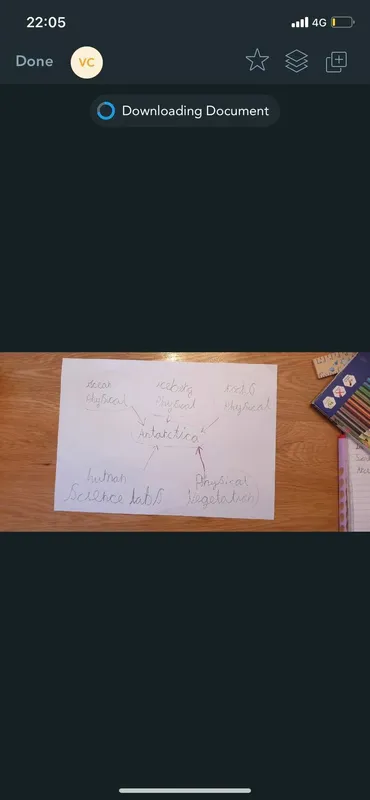 22:05
4G
Done
VC
Downloading Document
physical
iceberg
physical
physical
Antarctica
human
Science labs
Physical
Vegetation